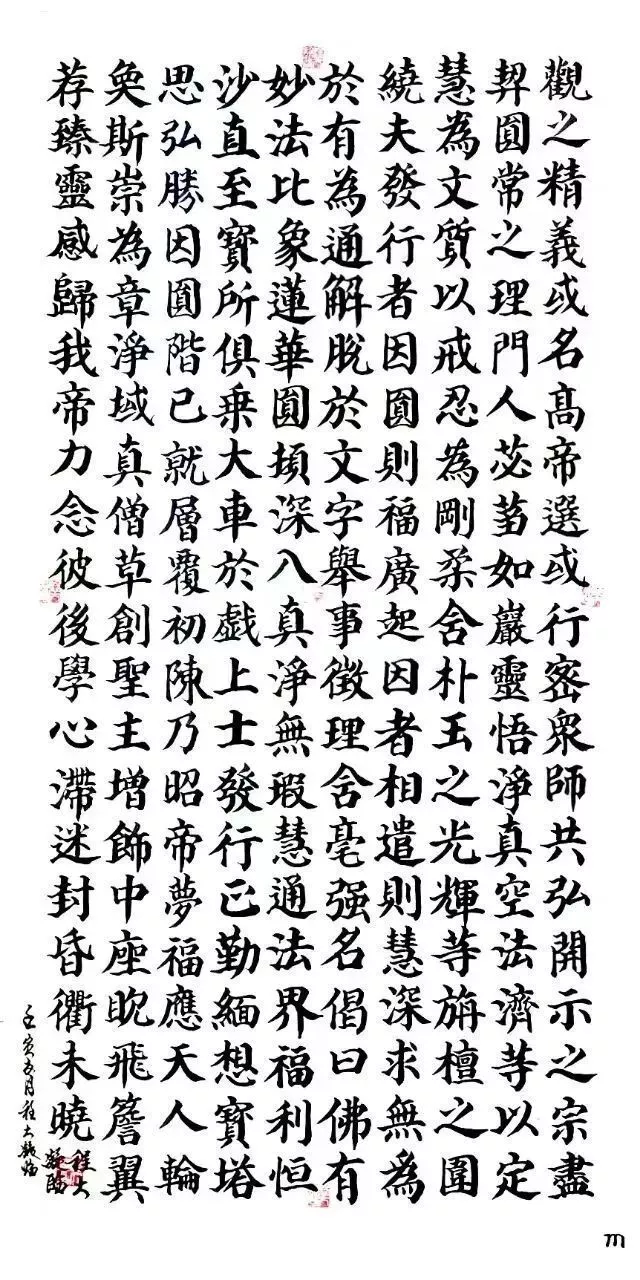 觀之精義或名高帝選或行密衆師共弘開示之宗盡
契圓常之理門人苾蒭如巖靈悟淨真空法濟等以定
慧為文質以戒忍為剛柔含朴玉之光輝等旃檀之圍
繞夫發行者因圓則福廣起因者相遣則慧深求無為
於有為通解脫於文字舉事徵理含毫强名偈曰佛有
妙法比象蓮華圓頓深入真淨無瑕慧通法界福利恒
沙直至寶所俱乗大車於戲上士發行正勤緬想寶塔
思弘勝因圓階已就層覆初陳乃昭帝夢福應天人輪
奐斯崇為章淨域真僧草創聖主增飾中座眈飛簷翼
荐臻靈感歸我帝力念彼後學心滯迷封昏衢未曉
壬寅月程大臨